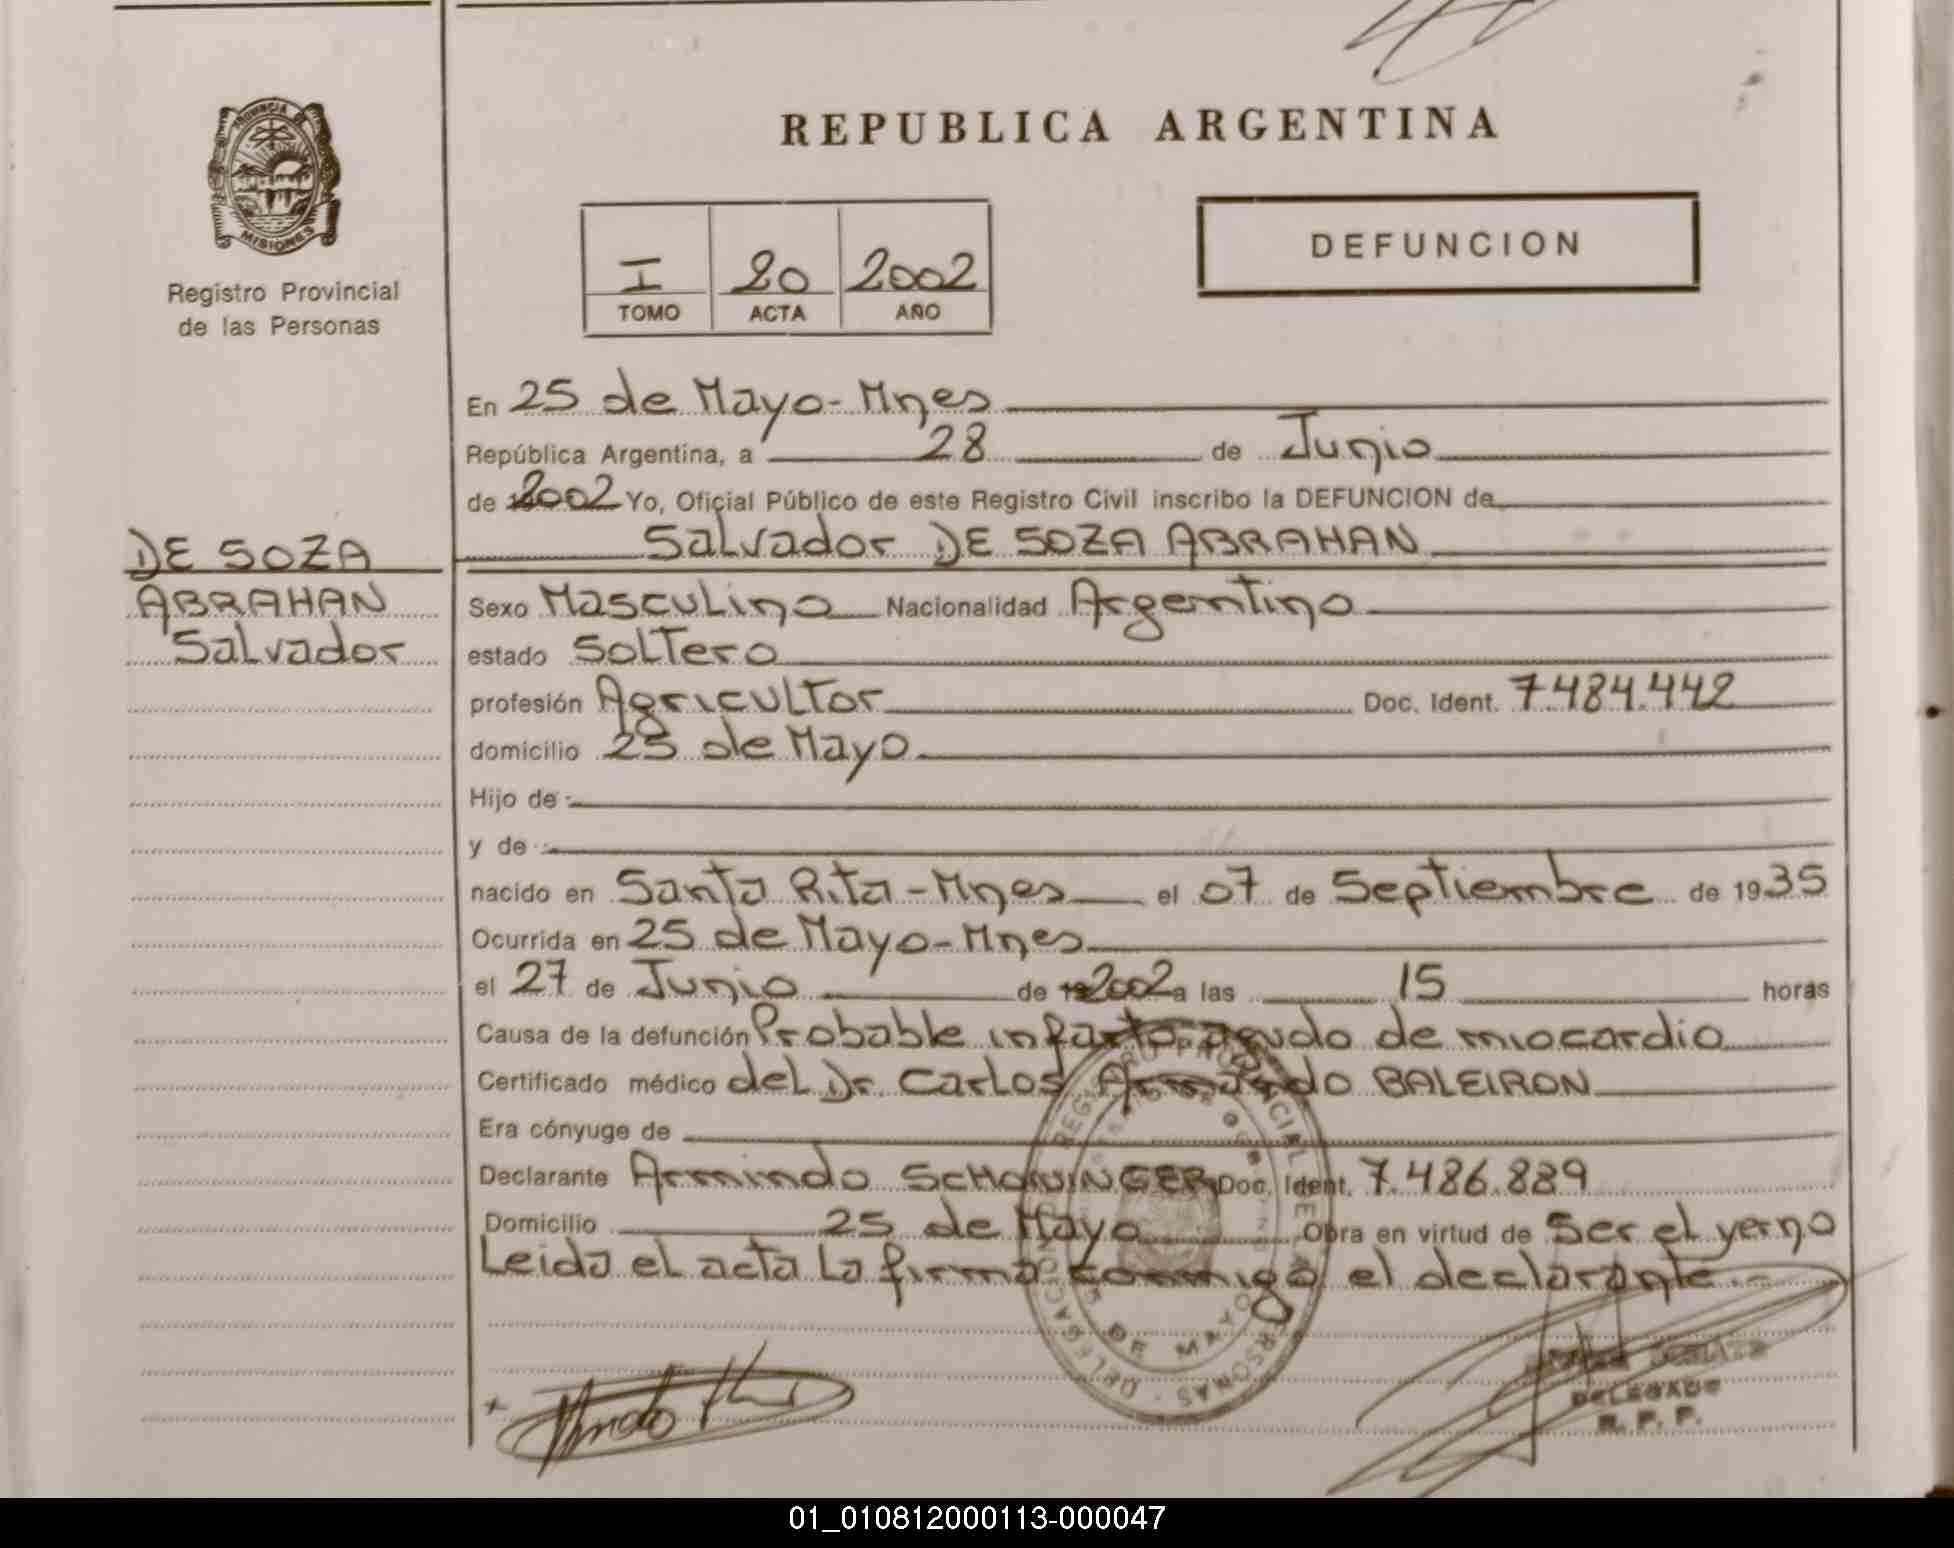 REPUBLICA ARGENTINA
PROVINCIA DE
MISIONES
Registro Provincial
de las Personas
I 20 2002
TOMO ACTA AÑO
DEFUNCION
En 25 de Mayo - Mnes
República Argentina, a 28 de Junio
de 2002 Yo, Oficial Público de este Registro Civil inscribo la DEFUNCION de
Salvador DE SOZA ABRAHAN
DE SOZA
ABRAHAN
Salvador
Sexo Masculino Nacionalidad Argentino
estado Soltero
profesión Agricultor Doc. Ident. 7.484.442
domicilio 25 de Mayo
Hijo de
y de
nacido en Santa Rita - Mnes el 07 de Septiembre de 1935
Ocurrida en 25 de Mayo - Mnes
el 27 de Junio de 2002 a las 15 horas
Causa de la defunción Probable infarto agudo de miocardio
Certificado médico del Dr. Carlos Armando BALEIRON
Era cónyuge de
Declarante Armindo Doc. Ident. 7.486.889
Domicilio 25 de Mayo Obra en virtud de Ser el yerno
Leida el acta la firma conmigo el declarante.-
REGISTRO PROVINCIAL DE LAS PERSONAS - DELEGACION
DE MAYO
DELEGADO
R. P. P.
01_010812000113-000047